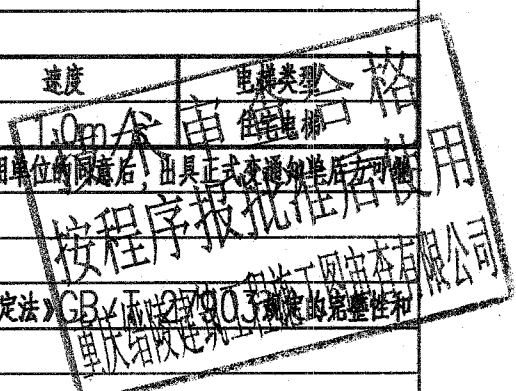 速度 电梯类型
1.0m 住宅电梯
用单位的同意后,出具正式变通知单后方可
定法》GB/T 27903规定的完整性和
技术审查合格
按程序报批准后使用
建筑工程施工图审查有限公司